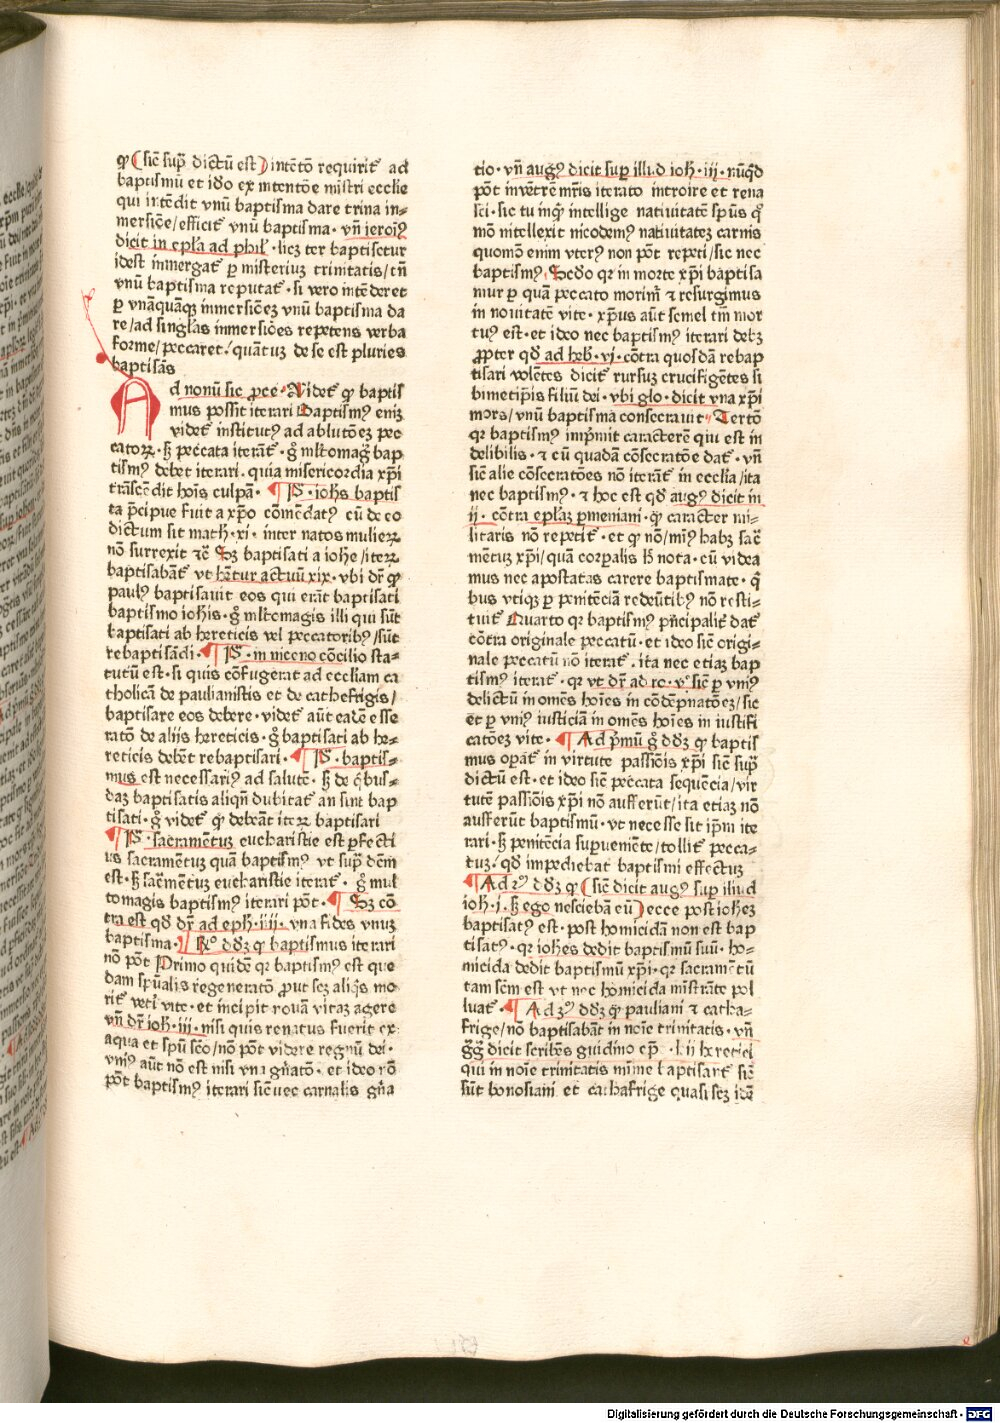 ꝙ (sic̄ sup̄ dictū est) intētō requirit᷑ ad
baptismū et iđo ex intentōe mīstri ecclie
qui intēdit vnū baptisma dare trina in⸗
mersiōe/efficit vnū baptisma · vn̄ ieroīꝰ
dicit in epl̄a ad phil̄ · licꝫ ter baptisetur
idest inmergat᷑ ꝑ misteriuꝫ trinitatis/tn̄
vnū baptisma reputat᷑ · si vero intēderet
ꝑ vnāquāqꝫ inmersiōeꝫ vnū baptisma da
re/ad singl̄as inmersiōes repetens verba
forme/peccaret · quātuꝫ de se est pluries
baptisās
Ad nonū sic ꝓce · Videt᷑ ꝙ baptis
mus possit iterari Baptismꝰ eniꝫ
videt᷑ institutꝰ ad ablutōeꝫ pec
catoꝝ · ꝫ peccata iterāt᷑ · g̊ ml̄tomaḡ bap
tismꝰ debet iterari · quia misericordia xp̄i
trāscēdit hoīs culpā · ¶ P̄ · ioh̄s baptis
ta p̄cipue fuit a xp̄o cōmēdatꝰ cū de eo
dictum sit math · xi · inter natos mulieꝝ
nō surrexit ⁊c̄ Sꝫ baptisati a iohe/iteꝝ
baptisabāt᷑ vt hētur actuū xix · vbi dr̄ ꝙ
paulꝰ baptisauit eos qui erāt baptisati
baptismo iohīs · g̊ ml̄tomagis illi qui sūt
baptisati ab hereticis vel peccatoribꝰ/sūt
rebaptisādi · ¶ P̄ · in niceno cōcilio sta⸗
tutū est · si quis cōfugerat ad eccliam ca
tholicā de paulianistis et de cathefrigis/
baptisare eos debere · videt᷑ aūt eadē esse
ratō de alijs hereticis · g̊ baptisati ab he⸗
reticis debēt rebaptisari · ¶ P̄ · baptis⸗
mus est necessariꝰ ad salutē · ꝫ de q̄bus⸗
daꝫ baptisatis aliqn̄ dubitat᷑ an sint bap
tisati · g̊ videt᷑ ꝙ debeāt iteꝝ baptisari
¶ P̄ · sacramētuꝫ eucharistie est ꝑfecti
us sacramētuꝫ quā baptismꝰ vt sup̄ dc̄m
est · ꝫ sac̄mētuꝫ eucharistie iterat᷑ · g̊ mul
tomagis baptismꝰ iterari pōt · ¶ Sꝫ cō
tra est qđ dr̄ ad eph · iiij · vna fides vnuꝫ
baptisma · ¶ R̄º dđꝫ ꝙ baptismus iterari
nō pōt Primo quidē qr baptismꝰ est que
dam spūalis regeneratō ꝓut scꝫ aliq̄s mo
rit᷑ veti vite · et incipit nouā vitaꝫ agere
vn̄ dr̄ ioh · iii · nisi quis renatus fuerit ex
aqua et spū scō/nō pōt videre regnū dei ·
vniꝰ aūt nō est nisi vna gn̄atō · et ideo nō
pōt baptismꝰ iterari sic̄ nec carnalis gn̄a
tio · vn̄ augꝰ dicit sup̄ illi.d ioh · iij · nūq̄d
pōt in vētrē mr̄is iterato introire et rena
sci · sic tu inq̄t intellige natiuitatē spūs q̊
mō intellexit nicodemꝰ natiuitateꝫ carnis
quomō enim vterꝰ non pōt repeti/sic nec
baptismꝰ Scđo qr in morte xp̄i baptisa
mur ꝑ quā peccato morim᷑ ⁊ resurgimus
in nouitatē vite · xp̄us aūt semel tm̄ mor
tuꝰ est · et ideo nec baptismꝰ iterari debꝫ
ꝓpter qđ ad heb · vj · cōtra quosdā rebap
tisari volētes dicit᷑ rursuꝫ crucifigētes si
bimetip̄is filiū dei · vbi glo · dicit vna xp̄i
mors/vnū baptisma consecrauit · Tertō
qr baptismꝰ imp̄mit caracterē qui est in
delibilis · ⁊ cū quadā cōsecratōe dat᷑ · vn̄
sic̄ alie cōsecratōes nō iterāt᷑ in ecclia/ita
nec baptismꝰ · ⁊ hoc est qđ augꝰ dicit in
ij · cōtra epl̄aꝫ ꝑmeniani · ꝙ caracter mi⸗
litaris nō repetit᷑ · et ꝙ nō/minꝰ habꝫ sac̄
mētuꝫ xp̄i/quā corꝑalis h̄ nota · cū videa
mus nec apostatas carere baptismate · q̄
bus vtiqꝫ ꝑ penitēciā redeūtibꝰ nō resti⸗
tuit᷑ Quarto qr baptismꝰ p̄ncipalit᷑ dat᷑
cōtra originale peccatū · et ideo sic̄ origi⸗
nale peccatū nō iterat᷑ · ita nec etiaꝫ bap
tismꝰ iterat᷑ · qr vt dr̄ ad ro · vº sic̄ ꝑ vniꝰ
delictū in omēs hoīes in cōdēpnatōeꝫ/sic
et ꝑ vniꝰ iusticiā in omēs hoīes in iustifi
catōeꝫ vite · ¶ Ad p̄mū g̊ dđꝫ ꝙ baptis
mus oꝑat᷑ in virtute passiōis xp̄i sic̄ sup̄
dictū est · et ideo sic̄ peccata sequēcia/vir
tutē passiōis xp̄i nō aufferūt/ita etiaꝫ nō
aufferūt baptismū · vt necesse sit ip̄m ite
rari · ꝫ penitēcia supueniente/tollit᷑ pecca⸗
tuꝫ · qđ impediebat baptismi effectuꝫ
¶ Ad 2ꝰ dđꝫ ꝙ (sic̄ dicit augꝰ sup̄ illud
ioh · i · ꝫ ego nesciebā eū) ecce post iohēꝫ
baptisatꝰ est · post homicidā non est bap
tisatꝰ · qr iohēs dedit baptismū suū · ho⸗
micida dedit baptismū xp̄i · qr sacramētū
tam scm̄ est vt nec homicida mīstrāte pol
luat᷑ · ¶ Ad 3ꝰ dđꝫ ꝙ pauliani ⁊ catha⸗
frige/nō baptisabāt in noīe trinitatis · vn̄
g̊g̊ dicit scribēs giridino ep̄ · hii heretici
qui in noīe trinitatis minime baptisant᷑ sic̄
sūt bonosiani et cathafrige quasi scꝫ idē
Digitalisierung gefördert durch die Deutsche Forschungsgemeinschaft - DFG